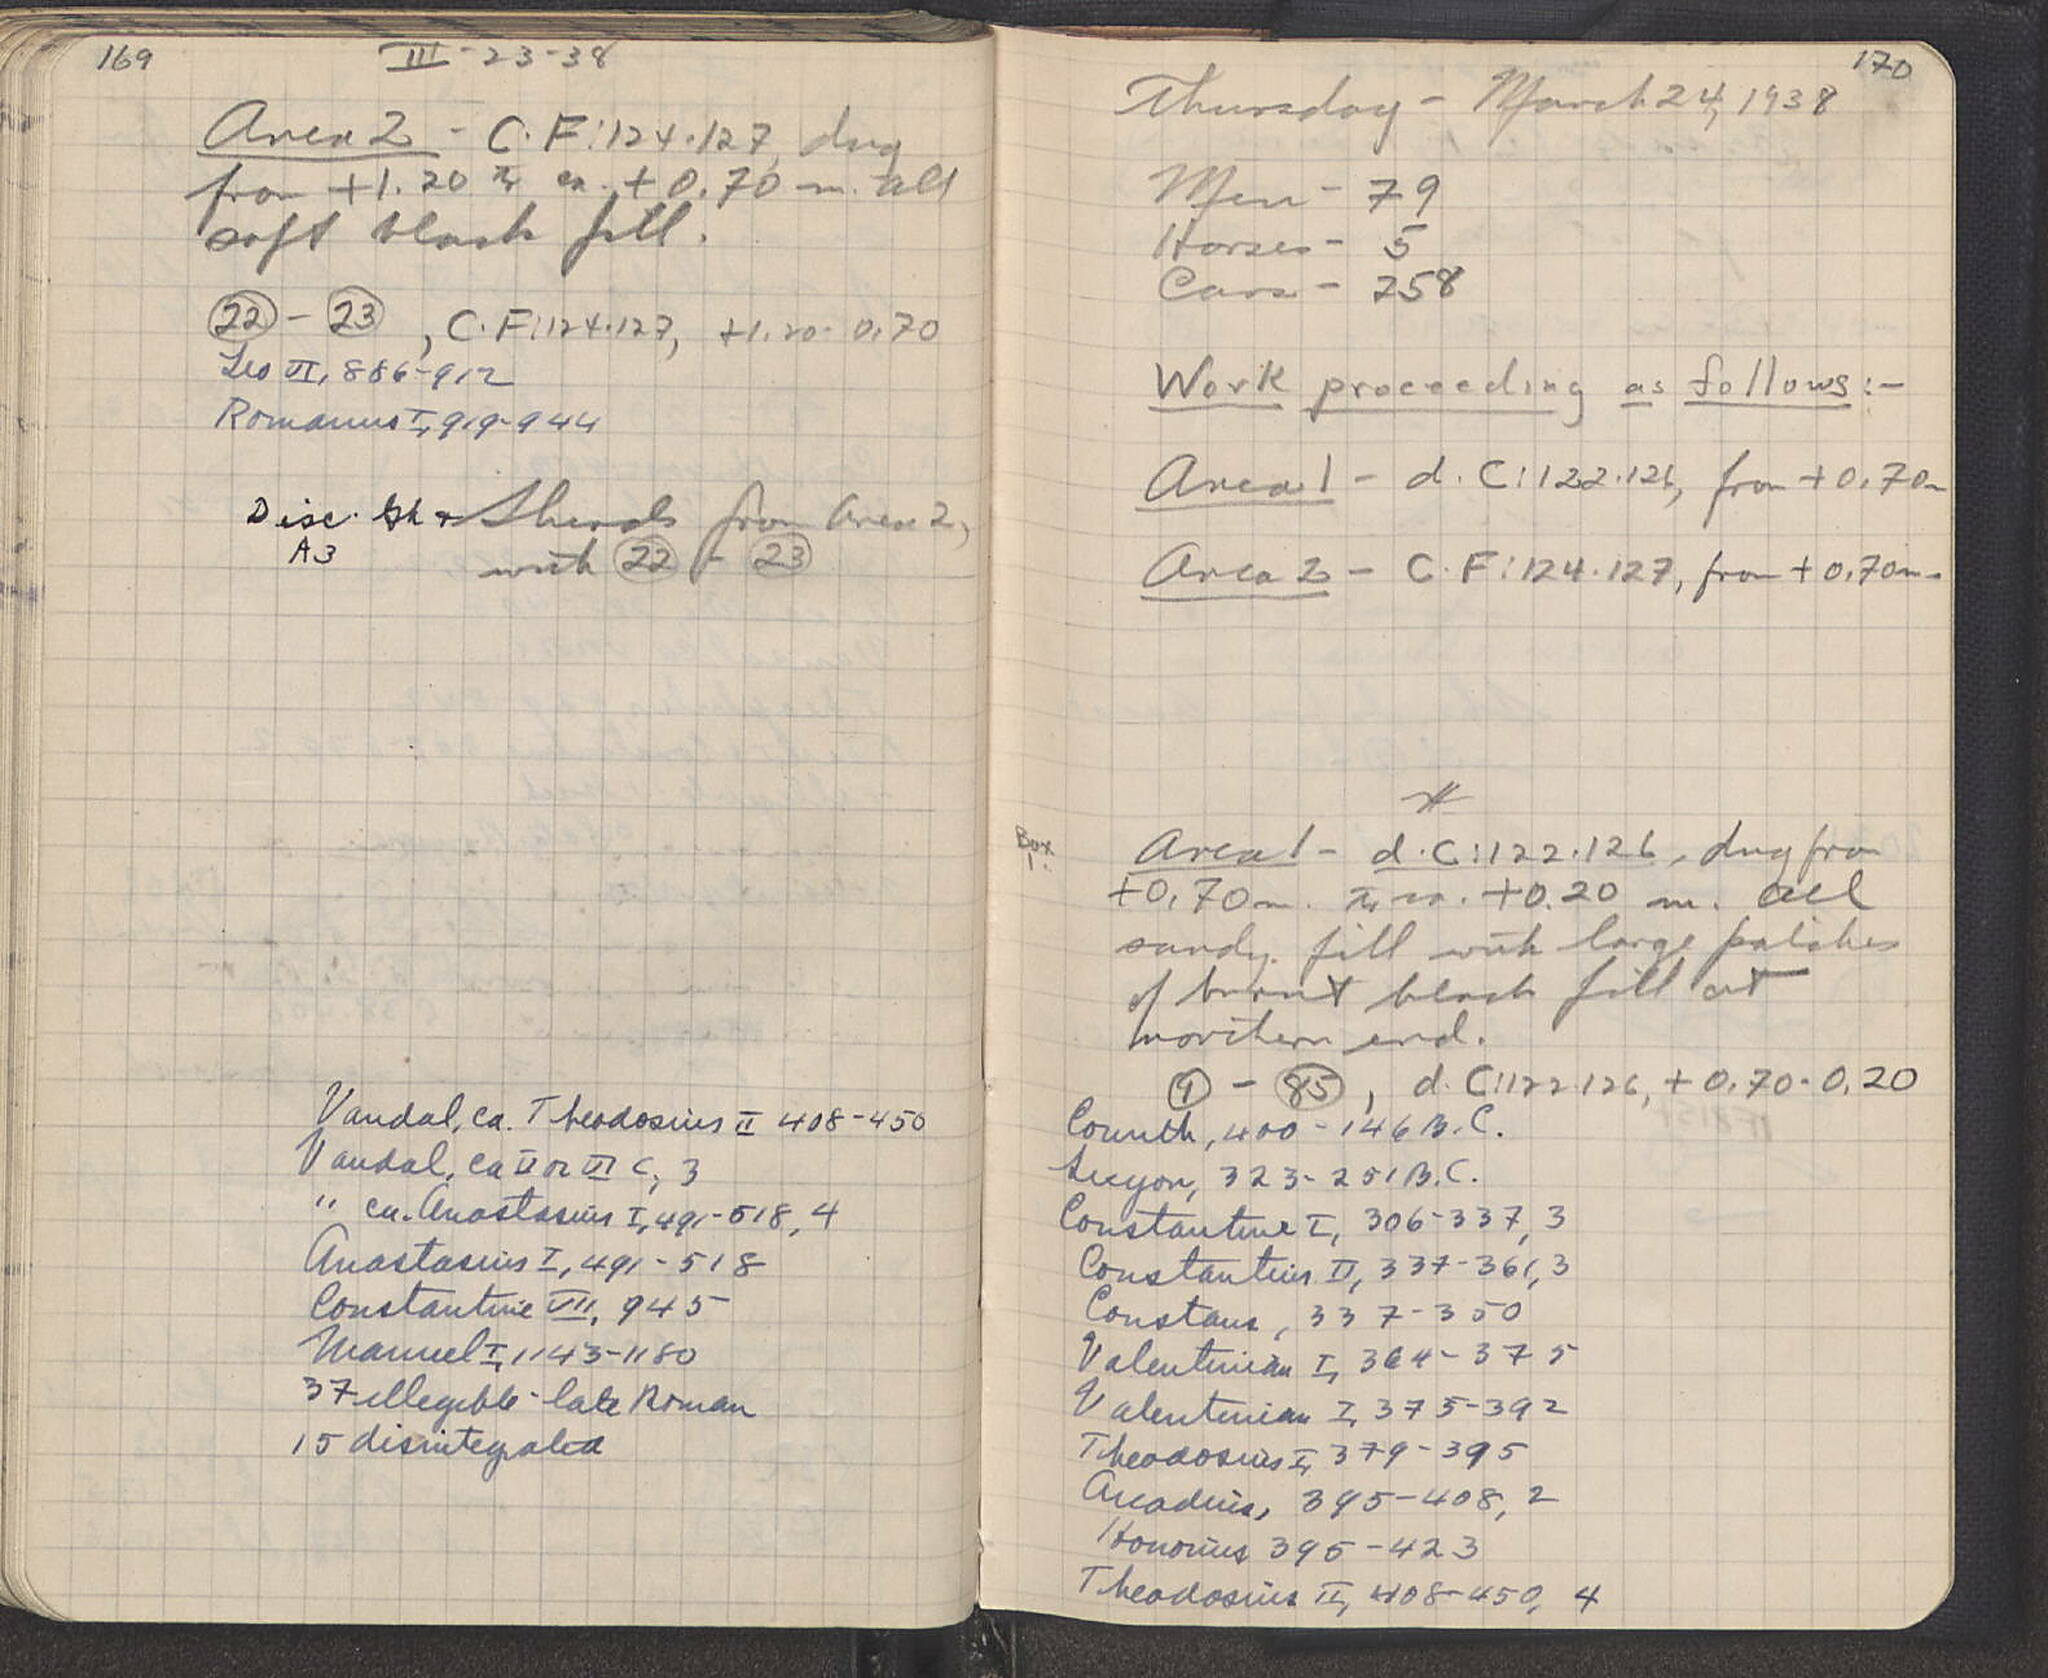 169
III-23-38
Area 2 - C·F:124·127, dug
from +1.20 to ca. +0.70 m. All
soft black fill.
22 - 23, C·F:124·127, +1.20-0.70
Leo VI, 886-912
Romanus I, 919-944
Disc. Gh + Sherds from Area 2,
A3 with 22 - 23
Vandal, ca. Theodosius II 408-450
Vandal, ca V or VI C, 3
" ca. Anastasius I, 491-518, 4
Anastasius I, 491-518
Constantine VII, 945
Manuel I, 1143-1180
37 illegible - late Roman
15 disintegrated
170
Thursday - March 24, 1938
Men - 79
Horses - 5
Cars - 258
Work proceeding as follows:-
Area 1 - d·C:122·126, from +0.70m
Area 2 - C·F:124·127, from +0.70m.
Box
1.
Area 1 - d·C:122·126, dug from
+0.70m. to ca. +0.20 m. All
sandy fill with large patches
of burnt black fill at
northern end.
1 - 85, d·C:122·126, +0.70-0.20
Corinth, 400-146 B.C.
Sicyon, 323-251 B.C.
Constantine I, 306-337, 3
Constantius II, 337-361, 3
Constans, 337-350
Valentinian I, 364-375
Valentinian I, 375-392
Theodosius I, 379-395
Arcadius, 395-408, 2
Honorius 395-423
Theodosius II, 408-450, 4